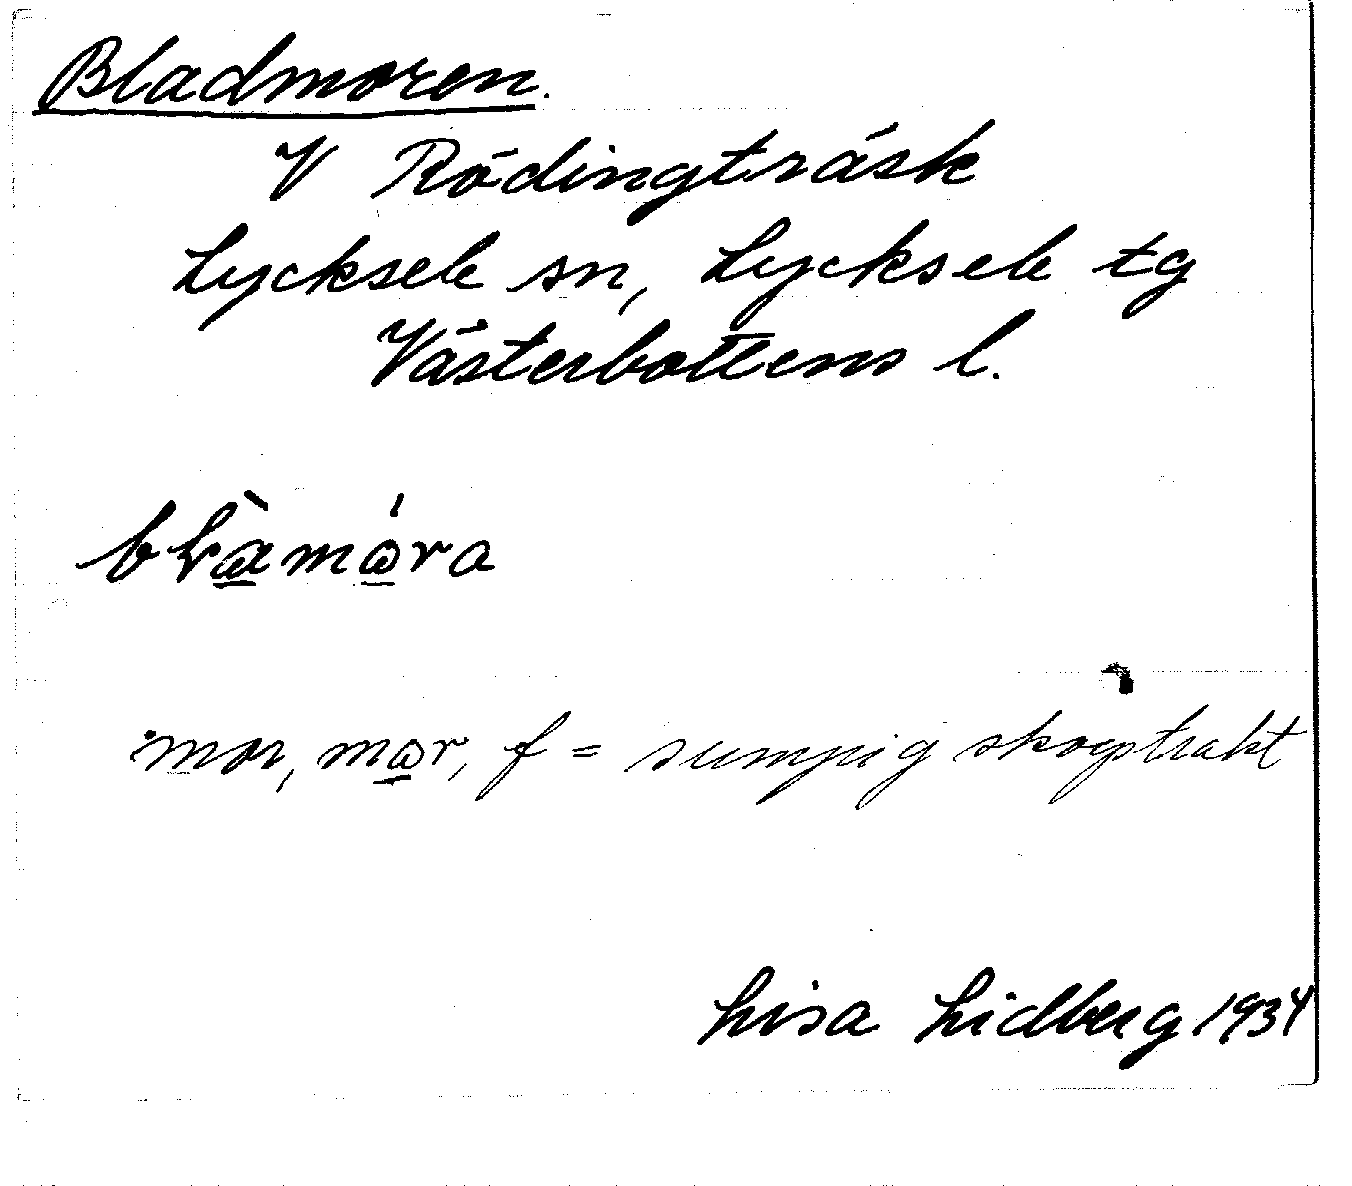 Bladmoren.
V Rödingträsk
Lycksele sn, Lycksele tg
Västerbottens l.
mor, mor, f = sumpig skogstrakt
Lisa Lidberg 1934